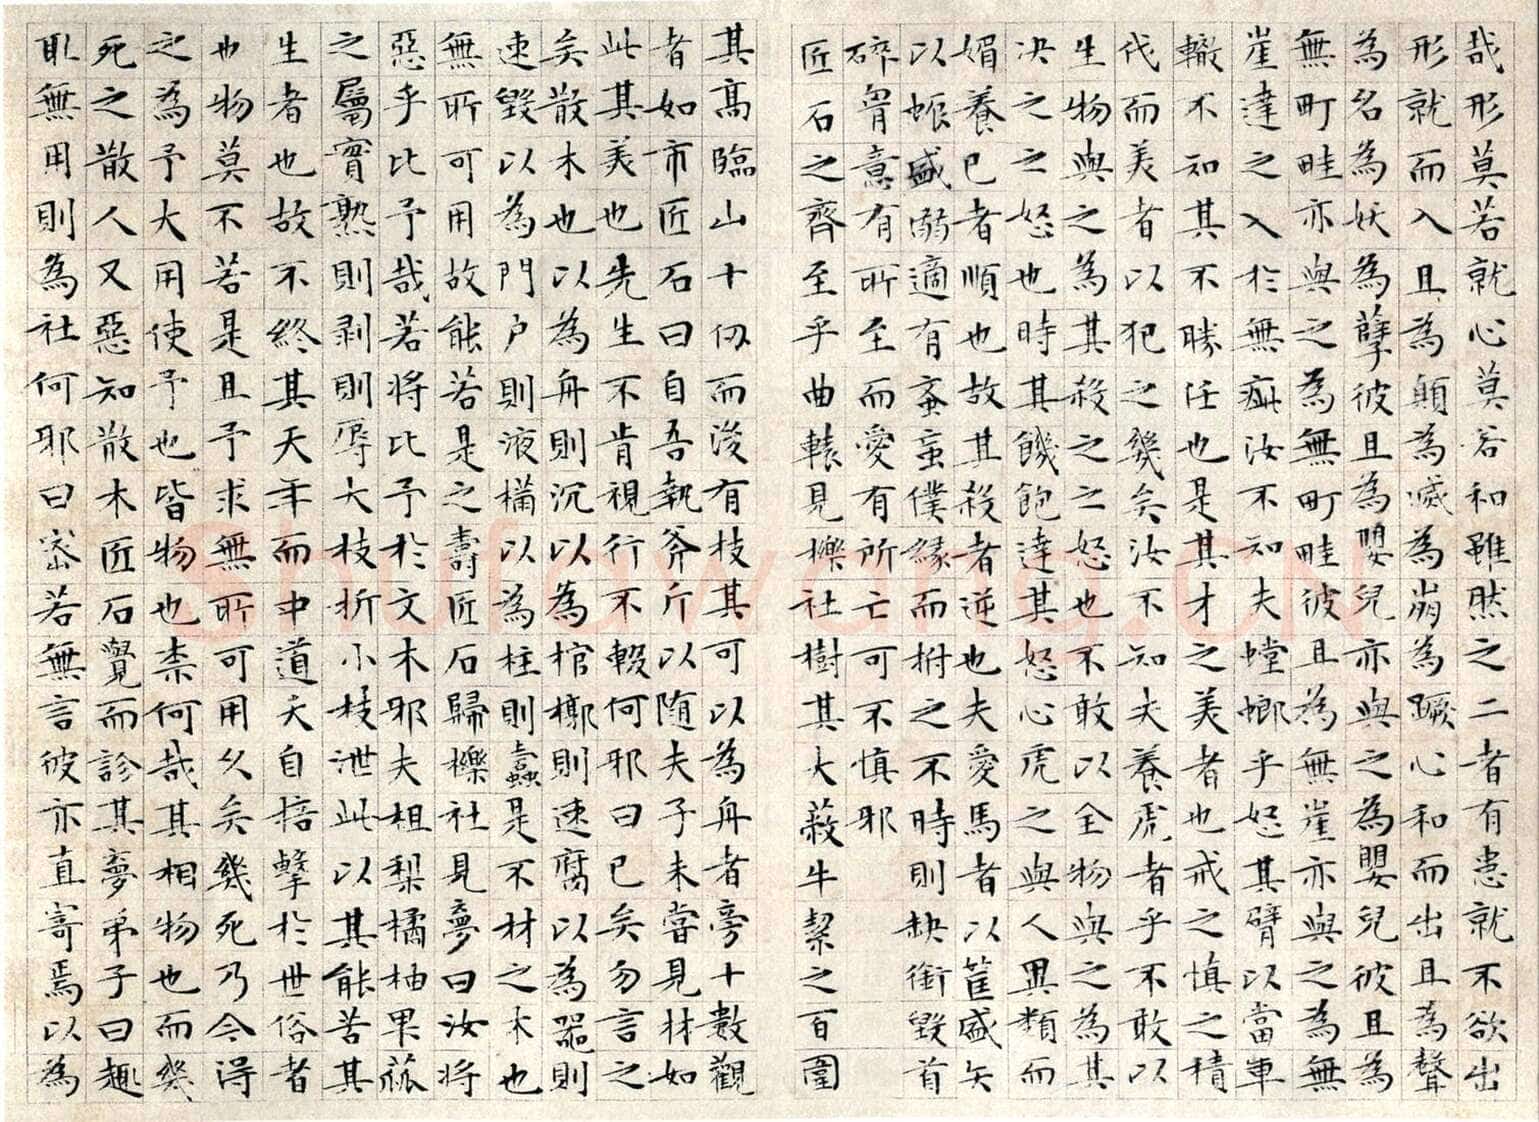 哉形莫若就心莫若和雖然之二者有患就不欲出
形就而入且為顛為滅為崩為蹶心和而出且為聲
為名為妖為孽彼且為嬰兒亦與之為嬰兒彼且為
無町畦亦與之為無町畦彼且為無崖亦與之為無
崖達之入於無疵汝不知夫螳螂乎怒其臂以當車
轍不知其不勝任也是其才之美者也戒之慎之積
伐而美者以犯之幾矣汝不知夫養虎者乎不敢以
生物與之為其殺之之怒也不敢以全物與之為其
決之之怒也時其饑飽達其怒心虎之與人異類而
媚養己者順也故其殺者逆也夫愛馬者以筐盛矢
以蜄盛溺適有蚉䖟僕緣而拊之不時則缺銜毀首
碎胷意有所至而愛有所亡可不慎邪
匠石之齊至乎曲轅見櫟社樹其大蔽牛絜之百圍
其高臨山十仞而後有枝其可以為舟者旁十數觀
者如市匠石曰自吾執斧斤以隨夫子未嘗見材如
此其美也先生不肯視行不輟何邪曰已矣勿言之
矣散木也以為舟則沉以為棺槨則速腐以為器則
速毀以為門戶則液樠以為柱則蠹是不材之木也
無所可用故能若是之壽匠石歸櫟社見夢曰汝將
惡乎比予哉若將比予於文木邪夫柤梨橘柚果蓏
之屬實熟則剥則辱大枝折小枝泄此以其能苦其
生者也故不終其天年而中道夭自掊擊於世俗者
也物莫不若是且予求無所可用久矣幾死乃今得
之為予大用使予也皆物也柰何哉其相物也而幾
死之散人又惡知散木匠石覺而診其夢弟子曰趣
取無用則為社何邪曰密若無言彼亦直寄焉以為
Shufawang.CN